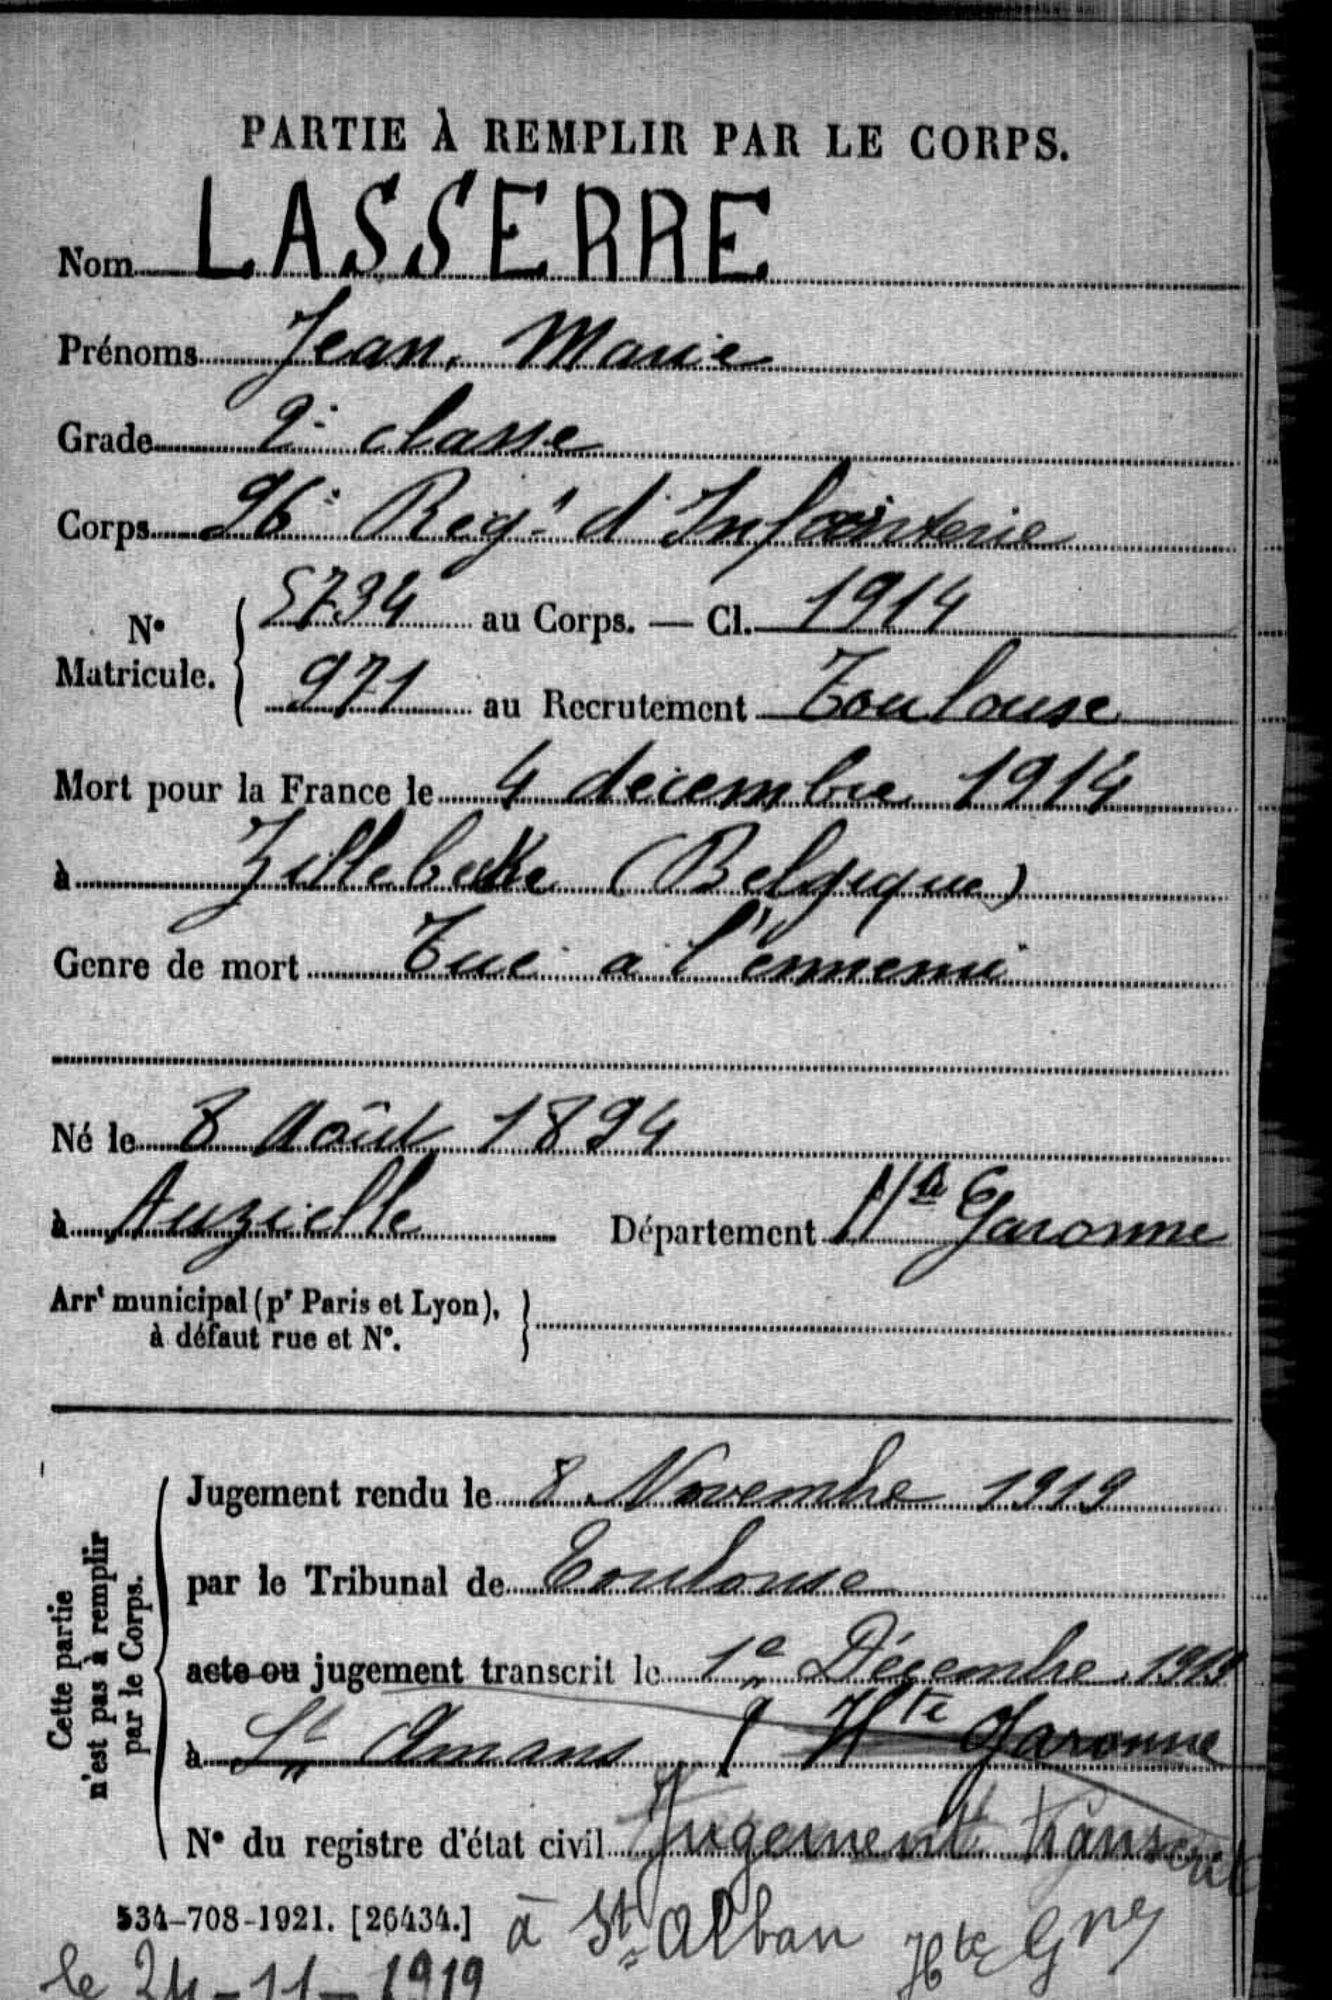 PARTIE À REMPLIR PAR LE CORPS.
Nom LASSERRE
Prénoms Jean, Marie
Grade 2e classe
Corps 96e Regt d'Infanterie
N° Matricule. { 5734 au Corps. — Cl. 1914
971 au Recrutement Toulouse
Mort pour la France le 4 décembre 1914
à Zillebeke (Belgique)
Genre de mort Tué à l'ennemi
Né le 8 Août 1894
à Auzielle Département Hte Garonne
Arrt municipal (pr Paris et Lyon), à défaut rue et N°. }
Cette partie n'est pas à remplir par le Corps.
Jugement rendu le 8 Novembre 1919
par le Tribunal de Toulouse
acte ou jugement transcrit le 1e Décembre 1919
à St Amans Hte Garonne
N° du registre d'état civil Jugement transcrit
534-708-1921. [26434.] à St Alban Hte Gne
le 24-11-1919